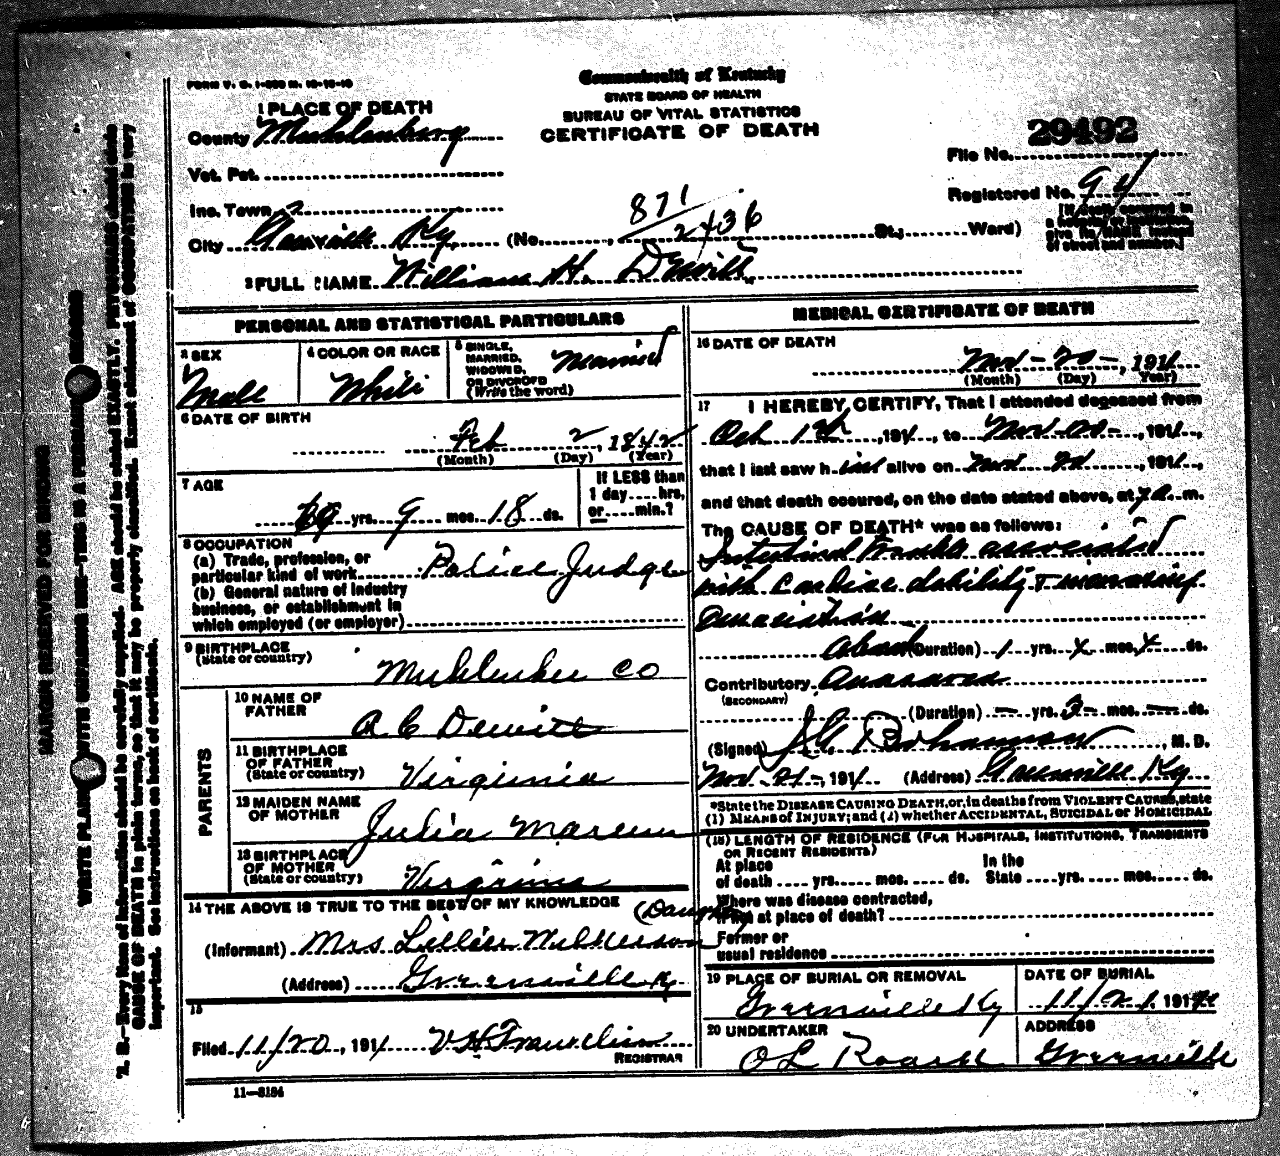 FORM V. S. 1-
Commonwealth of Kentucky
STATE BOARD OF HEALTH
BUREAU OF VITAL STATISTICS
CERTIFICATE OF DEATH
1 PLACE OF DEATH
County Muhlenburg
Vot. Pct.
Inc. Town
City Greenville Ky. (No. , St.; Ward)
871
2436
29492
File No.
Registered No. 94
[If death occurred in
a hospital or institution,
give its NAME instead
of street and number.]
2 FULL NAME William H. Dewitt
PERSONAL AND STATISTICAL PARTICULARS
3 SEX
Male
4 COLOR OR RACE
White
5 SINGLE,
MARRIED,
WIDOWED,
OR DIVORCED
(Write the word)
Married
6 DATE OF BIRTH
Feb 2, 1842
(Month) (Day) (Year)
7 AGE
69 yrs. 9 mos. 18 ds.
If LESS than
1 day hrs,
or min.?
8 OCCUPATION
(a) Trade, profession, or
particular kind of work Police Judge
(b) General nature of industry
business, or establishment in
which employed (or employer)
9 BIRTHPLACE
(State or country)
Muhlenber CO
PARENTS
10 NAME OF
FATHER
A C Dewitt
11 BIRTHPLACE
OF FATHER
(State or country)
Virginia
12 MAIDEN NAME
OF MOTHER
Julia Marcum
13 BIRTHPLACE
OF MOTHER
(State or country)
Virginia
14 THE ABOVE IS TRUE TO THE BEST OF MY KNOWLEDGE
(Informant) Mrs Lillian Wilkerson
(Address) Greenville Ky
15
Filed 11/20, 1911
REGISTRAR
11—3184
MEDICAL CERTIFICATE OF DEATH
16 DATE OF DEATH
Nov - 20 -, 1911
(Month) (Day) Year)
17 I HEREBY CERTIFY, That I attended deceased from
Oct 1st, 1911, to Nov 20 -, 1911,
that I last saw him alive on Nov 20, 1911,
and that death occured, on the date stated above, at m.
The CAUSE OF DEATH* was as follows:
Intestinal Trouble associated
with Cardiac debility &
emaciation
about (Duration) 1 yrs. x mos. x ds.
Contributory Anasarca
(SECONDARY)
(Duration) — yrs. 3 - mos. — ds.
(Signed) Bohannon, M. D.
Nov - 21 -, 1911 (Address) Greenville Ky
*State the DISEASE CAUSING DEATH, or, in deaths from VIOLENT CAUSES, state
(1) MEANS of INJURY; and (2) whether ACCIDENTAL, SUICIDAL or HOMICIDAL
(18) LENGTH OF RESIDENCE (FOR HOSPITALS, INSTITUTIONS, TRANSIENTS
OR RECENT RESIDENTS)
At place
of death yrs. mos. ds.
In the
State yrs. mos. ds.
Where was disease contracted,
if not at place of death?
Former or
usual residence
19 PLACE OF BURIAL OR REMOVAL
Greenville Ky
DATE OF BURIAL
11/21, 191
20 UNDERTAKER
O L Roark
ADDRESS
Greenville
MARGIN RESERVED FOR BINDING
WRITE PLAINLY WITH UNFADING INK—THIS IS A PERMANENT RECORD
N. B.—Every item of information should be carefully supplied. AGE should be stated EXACTLY. PHYSICIANS should state
CAUSE OF DEATH in plain terms, so that it may be properly classified. Exact statement of OCCUPATION is very
important. See instructions on back of certificate.